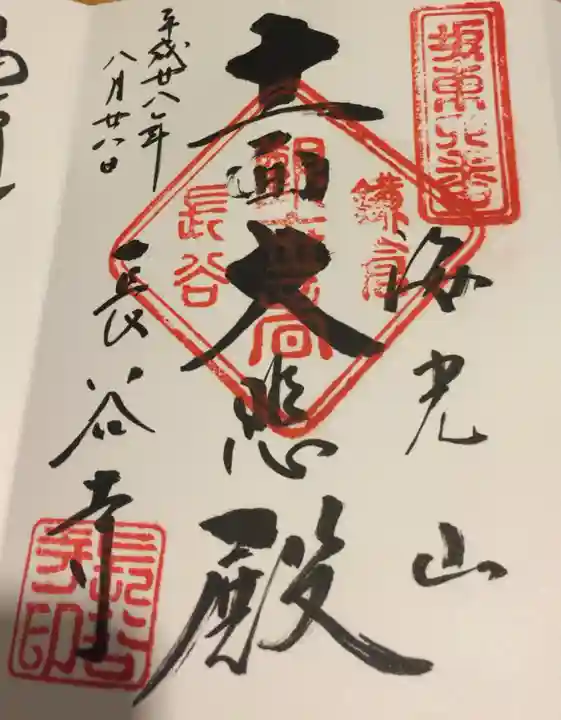 坂東四番
海光山
鎌倉
十一面大悲殿
長谷
平成廿八年
八月廿八日
長谷寺
長谷寺印